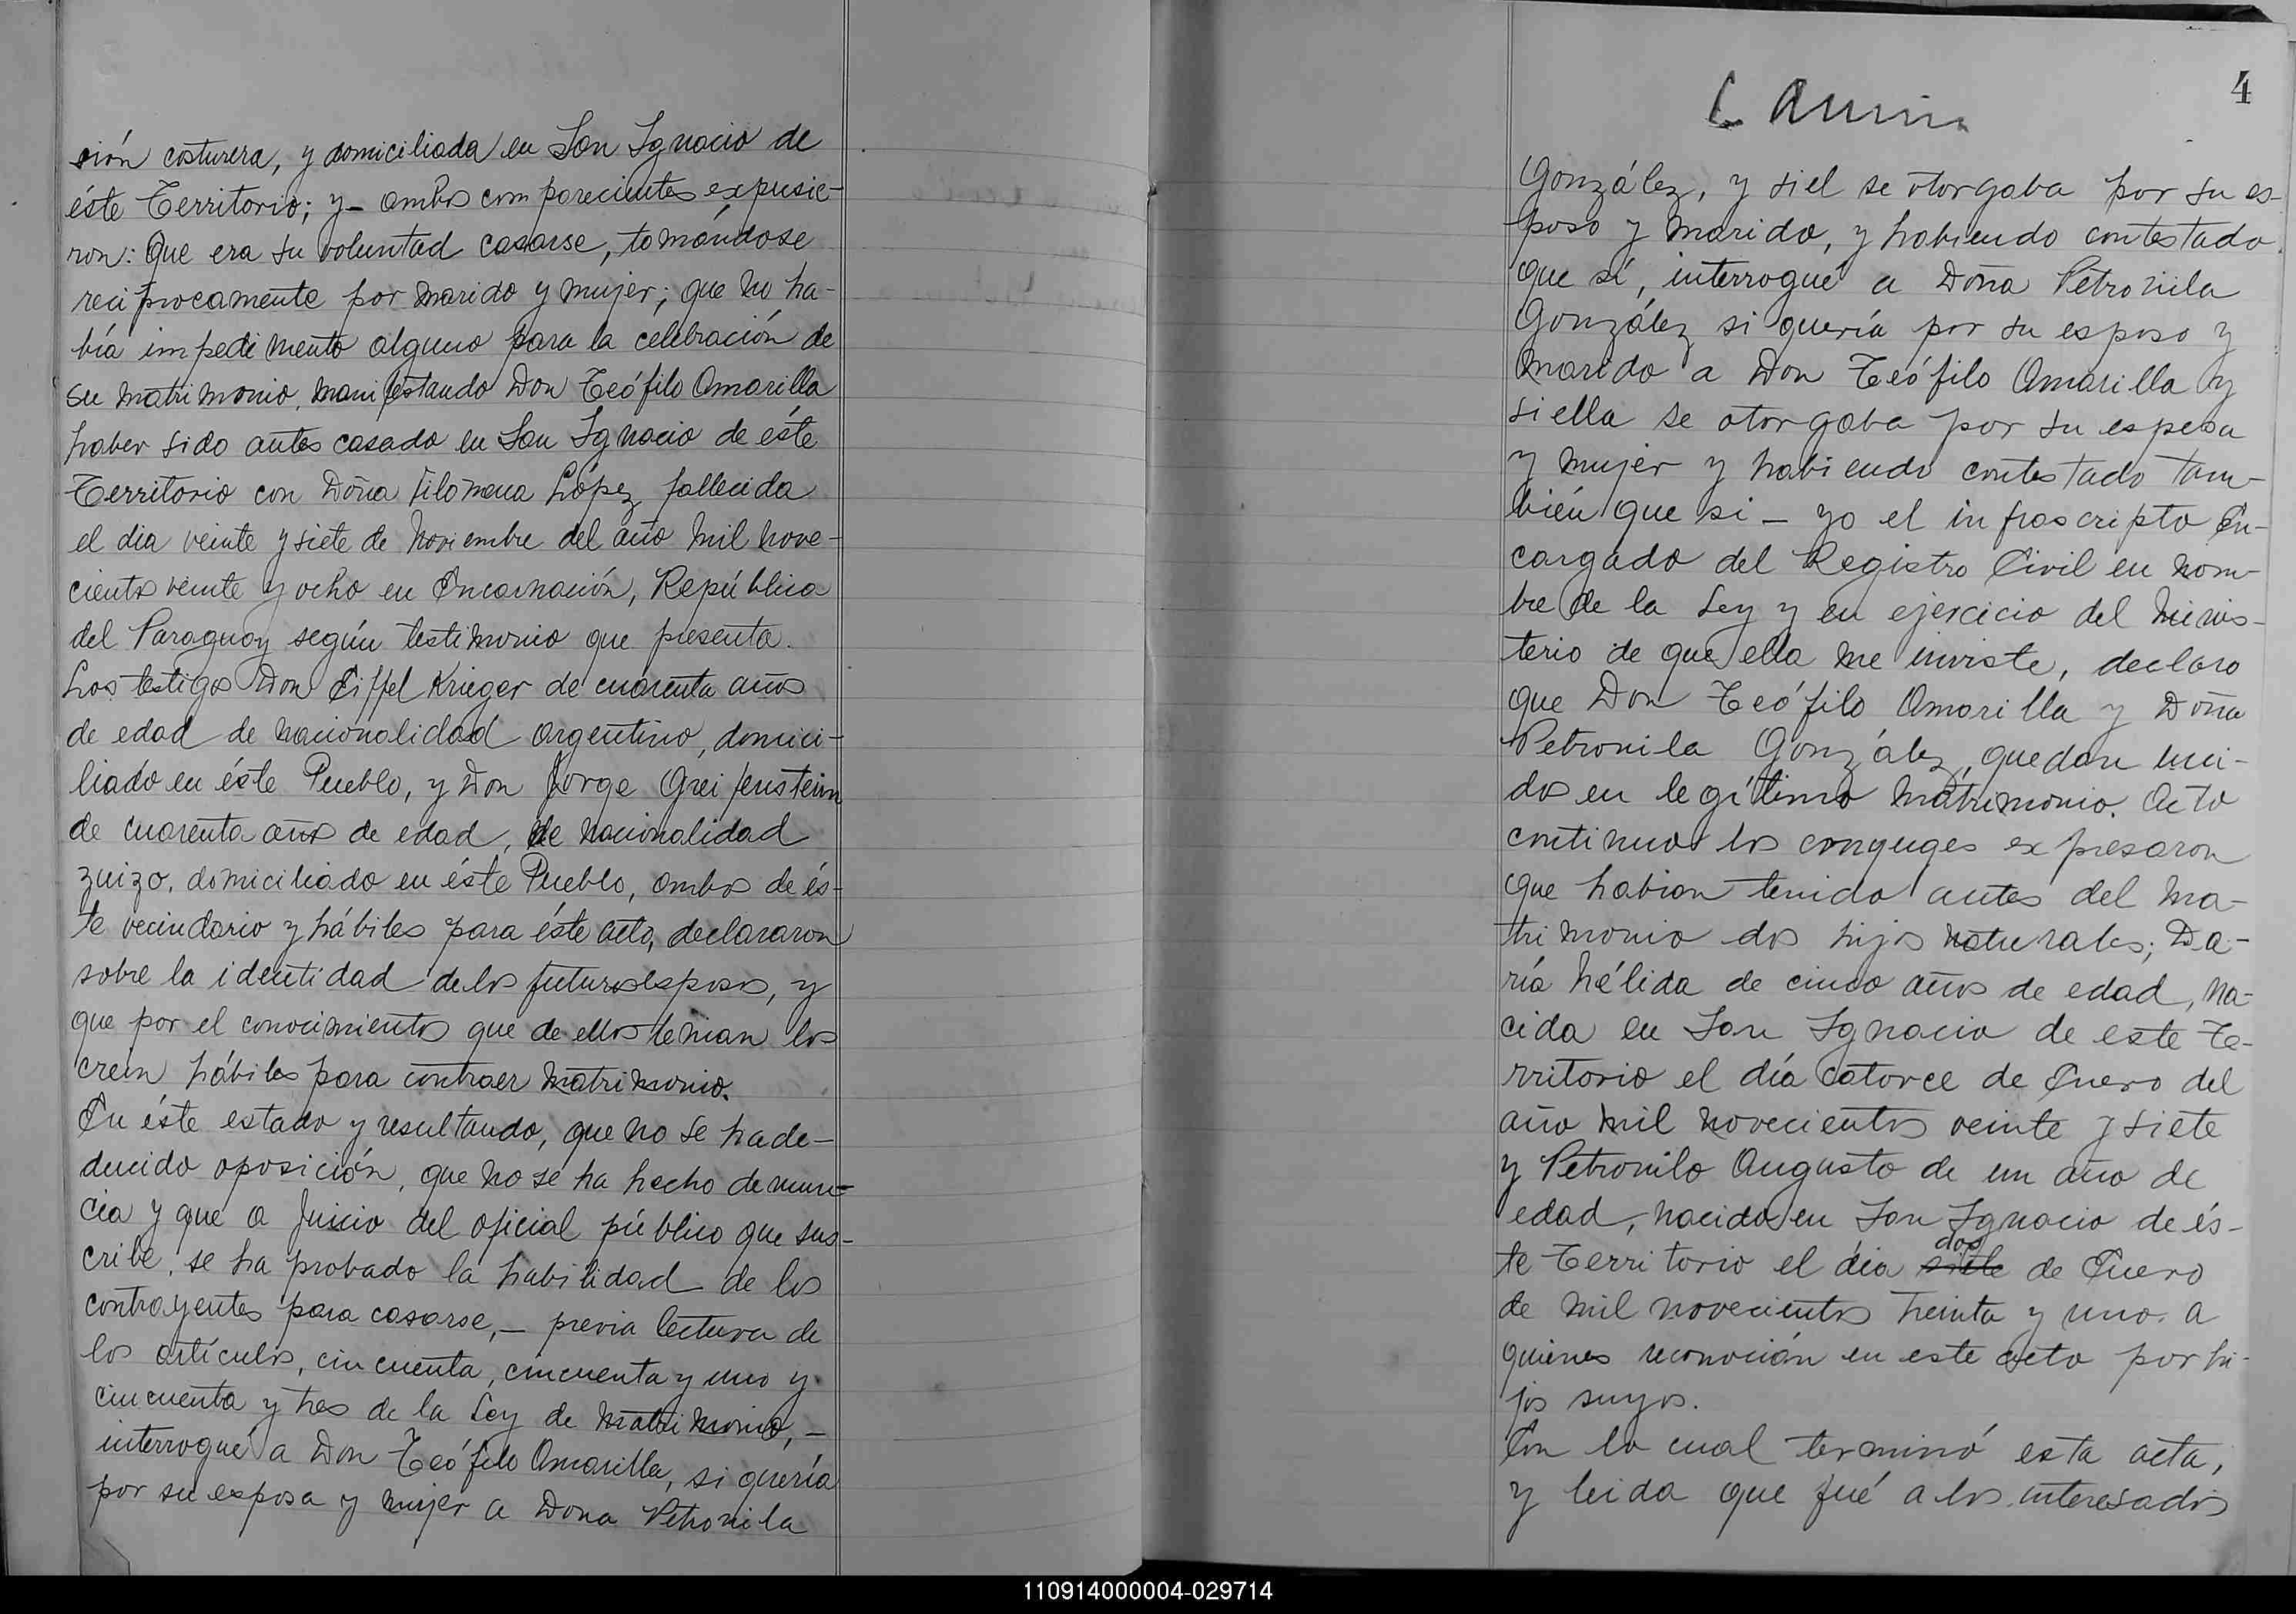 sión costurera, y domiciliada en San Ignacio de
éste Territorio; y - ambos comparecientes expusie-
ron: Que era su voluntad casarse, tomándose
reciprocamente por marido y mujer; que no ha-
bía impedimento alguno para la celebración de
su matrimonio, manifestando Don Teófilo Amarilla
haber sido antes casado en San Ignacio de éste
Territorio con Doña Filomena López fallecida
el dia veinte y siete de Noviembre del año mil nove-
cientos veinte y ocho en Encarnación, República
del Paraguay según testimonio que presenta.
Los testigos Don Eiffel Krieger de cuarenta años
de edad de nacionalidad Argentino, domici-
liado en éste Pueblo, y Don Jorge Greifenstein
de cuarenta años de edad, de nacionalidad
zuizo, domiciliado en éste Pueblo, ambos de és-
te vecindario y hábiles para éste acto, declararon
sobre la identidad de los futuros esposos, y
que por el conocimiento que de ellos tenian los
creen hábiles para contraer matrimonio.
En éste estado y resultando, que no se ha de-
ducido oposición, que no se ha hecho denun=
cia y que a Juicio del oficial público que sus-
cribe, se ha probado la habilidad de los
contrayentes para casarse, - previa lectura de
los artículos, cincuenta, cincuenta y uno y
cincuenta y tres de la Ley de Matrimonio, -
interrogué a Don Teófilo Amarilla, si quería
por su esposa y mujer a Dona Petronila
4
González, y si el se otorgaba por su es-
poso y marido, y habiendo contestado
que sí, interrogué a Doña Petronila
González si quería por su esposo y
marido a Don Teófilo Amarilla y
si ella se otorgaba por su esposa
y mujer y habiendo contestado tam-
bién que si - yo el infrascripto En-
cargado del Registro Civil en nom-
bre de la Ley y en ejercicio del minis-
terio de que ella me inviste, declaro
que Don Teófilo Amarilla y Doña
Petronila González, quedan uni-
dos en legítimo matrimonio. Acto
continuo los conyuges expresaron
que habian tenido antes del ma-
trimonio dos hijos naturales; Da-
ría hélida de cinco años de edad, na-
cida en San Ignacio de este Te-
rritorio el día catorce de Enero del
año mil novecientos veinte y siete
y Petronilo Augusto de un año de
edad, nacido en San Ignacio de és-
te Territorio el dia siete dos de Enero
de mil novecientos treinta y uno. a
quienes reconocían en este acto por hi-
jos suyos.
Con lo cual terminó esta acta,
y leida que fué a los interesados
110914000004-029714